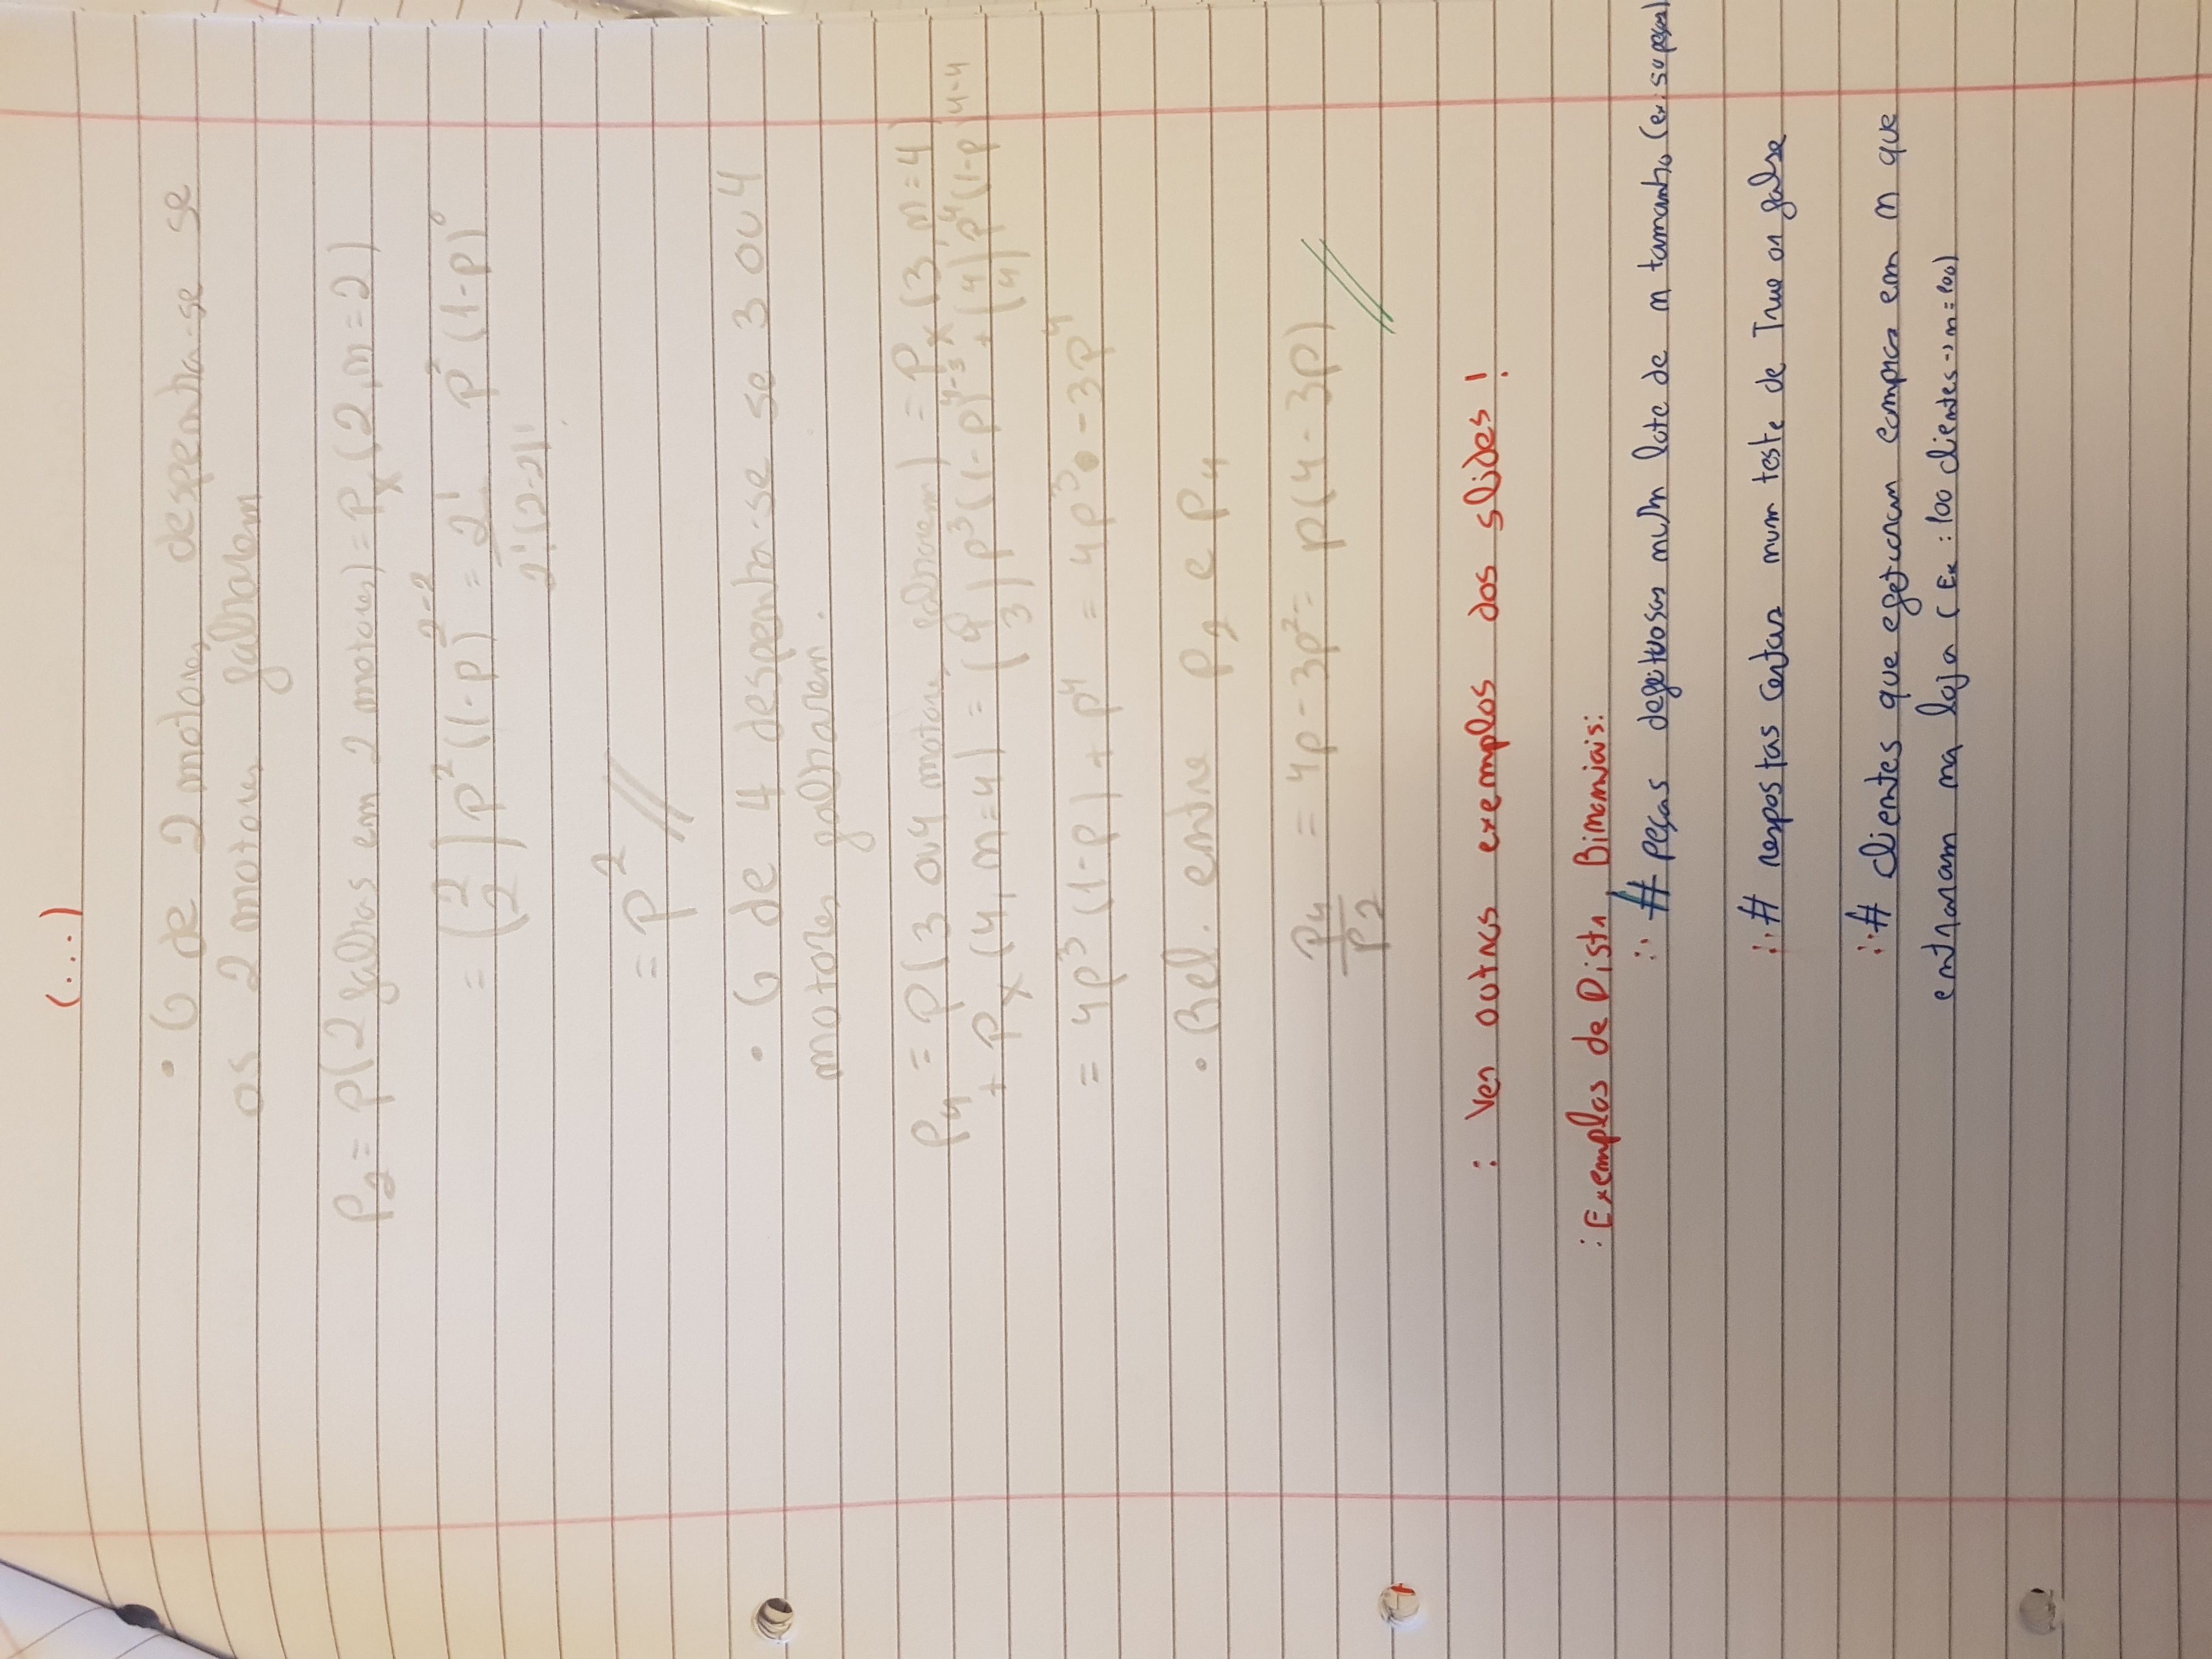 (...)
• O de 2 motores despenha-se se
os 2 motores falharem
P2 = P(2 falhas em 2 motores) = Px (2, n=2)
= (2 2) p² (1-p)²⁻² = 2! / 2!(2-2)! p² (1-p)⁰
= p² //
• O de 4 despenha-se se 3 ou 4
motores falharem.
P4 = P(3 ou 4 motores falharem) = Px (3, n=4)
+ Px (4, n=4) = (4 3) p³ (1-p)⁴⁻³ + (4 4) p⁴ (1-p)⁴⁻⁴
= 4p³ (1-p) + p⁴ = 4p³ - 3p⁴
• Rel. entre P2 e P4
P4 / P2 = 4p - 3p² = p(4 - 3p) //
: Ver outros exemplos dos slides !
: Exemplos de Distr. Binomiais:
:· # peças defeituosas num lote de n tamanho (ex: 50 peças)
:· # respostas certas num teste de True or false
:· # clientes que efeturam compras em n que
entraram na loja (Ex : 100 clientes -> n = 100)